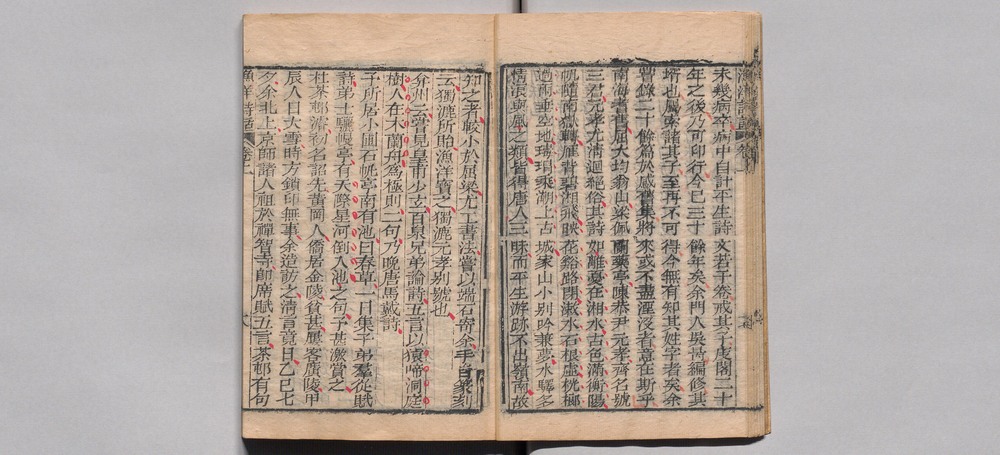 漁洋詩話 卷二
未幾病卒病中自計平生詩文若干卷戒其子庋閣二十
年之後乃可印行今已三十餘年矣余門人吳編修其
壻也屬索諸其子至再不可得今無有知其姓字者矣余
嘗錄二十餘篇於感舊集將來或不盡湮沒者意在斯乎
南海耆舊屈大均翁山梁佩蘭藥亭陳恭尹元孝齊名號
三君元孝尤清迥絕俗其詩如離憂在湘水古色滿衡陽
帆隨南嶽轉雁背碧湘飛映花谿路閉漱水石根虛桄榔
過雨垂空地瑇瑁乘潮上古城家山小別吟兼夢水驛多
情浪與風之類皆得唐人三昧而平生游跡不出嶺南故
知之者較小於屈梁尤工書法嘗以端石寄余手自篆刻
云獨漉所貽漁洋寶之獨漉元孝別號也
弇州云嘗見皇甫少玄百泉兄弟論詩五言以猿啼洞庭
樹人在木蘭舟為極則二句乃晚唐馬戴詩
子所居小圃石帆亭南有池曰春草一日集子弟羣從賦
詩弟士驪幔亭有天際星河倒入池之句予甚激賞之
杜茶邨濬初名詔先黃岡人僑居金陵貧甚厭客廣陵甲
辰人日大雪時方鎖印無事余造訪之清言竟日乙巳七
夕余北上京師諸人祖於禪智寺師席賦五言茶邨有句
漁洋詩話 卷二 八